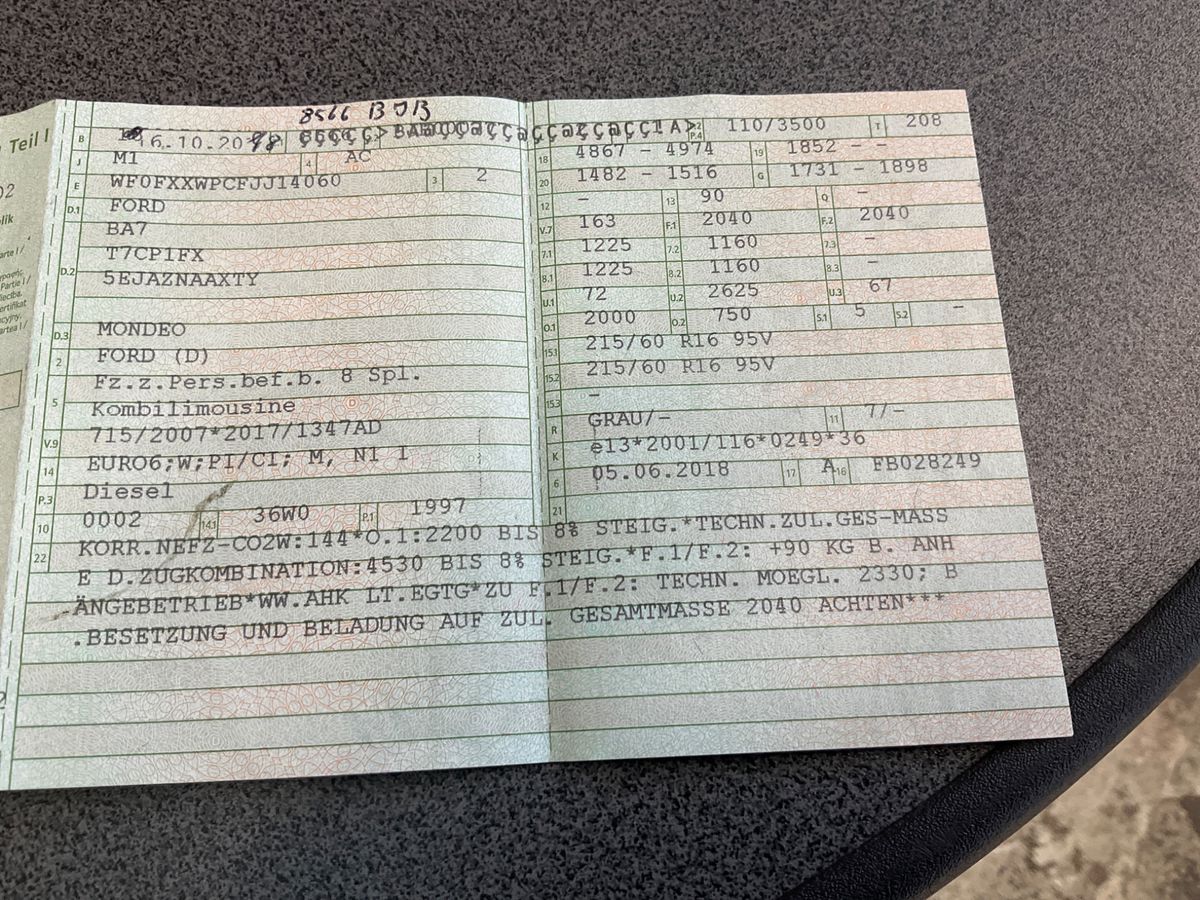 8566 BJB
Teil I
B 16.10.20 P.2 P.4 110/3500 T 208
J M1 4 AC 18 4867 - 4974 19 1852 - -
E WF0FXXWPCFJJ14060 3 2 20 1482 - 1516 G 1731 - 1898
D.1 FORD 12 - 13 90 Q -
D.2 BA7 V.7 163 F.1 2040 F.2 2040
T7CP1FX 7.1 1225 7.2 1160 7.3 -
5EJAZNAAXTY 8.1 1225 8.2 1160 8.3 -
U.1 72 U.2 2625 U.3 67
D.3 MONDEO O.1 2000 O.2 750 S.1 5 S.2 -
2 FORD (D) 15.1 215/60 R16 95V
5 Fz.z.Pers.bef.b. 8 Spl. 15.2 215/60 R16 95V
Kombilimousine 15.3 -
V.9 715/2007*2017/1347AD R GRAU/- 11 7/-
14 EURO6;W;PI/CI; M, N1 I K e13*2001/116*0249*36
P.3 Diesel 6 05.06.2018 17 A 16 FB028249
10 0002 14.1 36W0 P.1 1997 21
22 KORR.NEFZ-CO2W:144*O.1:2200 BIS 8% STEIG.*TECHN.ZUL.GES-MASS
E D.ZUGKOMBINATION:4530 BIS 8% STEIG.*F.1/F.2: +90 KG B. ANH
ÄNGEBETRIEB*WW.AHK LT.EGTG*ZU F.1/F.2: TECHN. MOEGL. 2330; B
.BESETZUNG UND BELADUNG AUF ZUL. GESAMTMASSE 2040 ACHTEN***